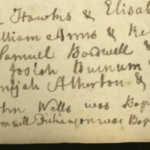 Hawks & Elisab
William Arms & Re
Samuel Bodwell &
Josiah Burnum &
nijah Atherton &
ohn Wells was Bap
muel Dickinson was Bap